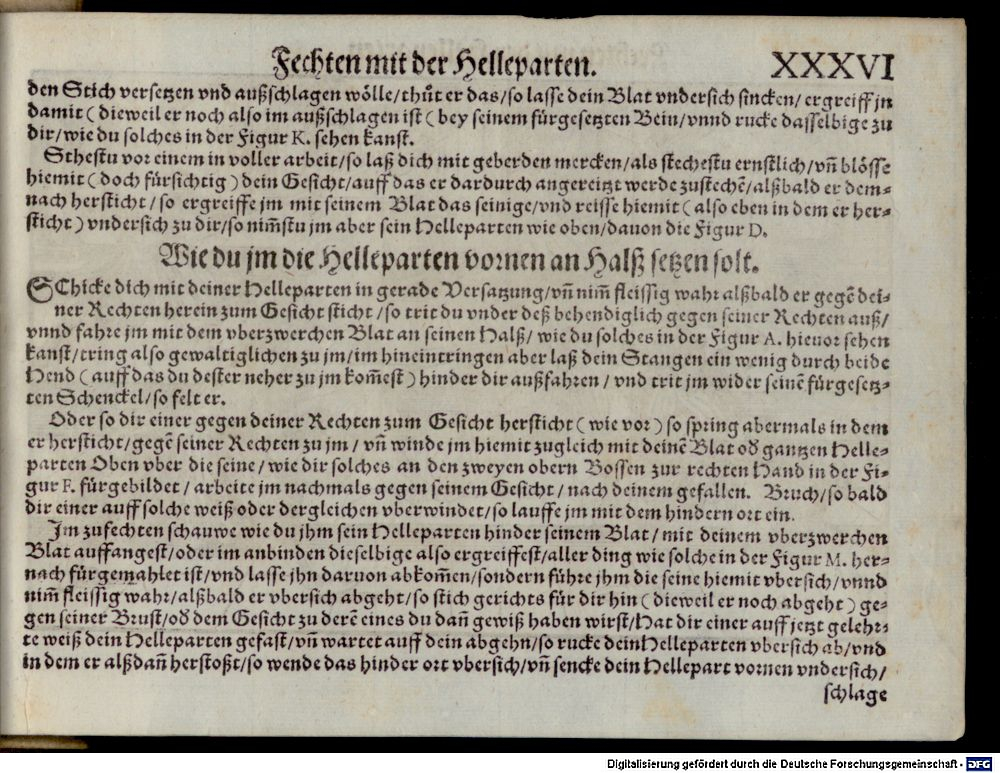 Fechten mit der Helleparten. XXXVI
den Stich versetzen vnd außschlagen wölle/thůt er das/so lasse dein Blat vndersich sincken/ ergreiff jn
damit (dieweil er noch also im außschlagen ist (bey seinem fürgesetzten Bein/vnnd rucke dasselbige zu
dir/wie du solches in der Figur K. sehen kanst.
Sthestu vor einem in voller arbeit/so laß dich mit geberden mercken/als stechestu ernstlich/vñ blösse
hiemit (doch fürsichtig) dein Gesicht/auff das er dardurch angereitzt werde zustechẽ/alßbald er dem-
nach hersticht/so ergreiffe jm mit seinem Blat das seinige/vnd reisse hiemit (also eben in dem er her-
sticht) vndersich zu dir/so nim̃stu jm aber sein Helleparten wie oben/dauon die Figur D.
Wie du jm die Helleparten vornen an Halß setzen solt.
SChicke dich mit deiner Helleparten in gerade Versatzung/vñ nim̃ fleissig wahr alßbald er gegẽ dei-
ner Rechten herein zum Gesicht sticht/so trit du vnder deß behendiglich gegen seiner Rechten auß/
vnnd fahre jm mit dem vberzwerchen Blat an seinen Halß/ wie du solches in der Figur A. hieuor sehen
kanst/tring also gewaltiglichen zu jm/im hineintringen aber laß dein Stangen ein wenig durch beide
Hend (auff das du dester neher zu jm kom̃est) hinder dir außfahren/ vnd trit jm wider seinẽ fürgesetz-
ten Schenckel/so felt er.
Oder so dir einer gegen deiner Rechten zum Gesicht hersticht (wie vor) so spring abermals in dem
er hersticht/gegẽ seiner Rechten zu jm/ vñ winde jm hiemit zugleich mit deinẽ Blat oď gantzen Helle-
parten Oben vber die seine/wie dir solches an den zweyen obern Bossen zur rechten Hand in der Fi-
gur F. fürgebildet/arbeite jm nachmals gegen seinem Gesicht/nach deinem gefallen. Bruch/so bald
dir einer auff solche weiß oder dergleichen vberwindet/so lauffe jm mit dem hindern ort ein.
Im zufechten schauwe wie du jhm sein Helleparten hinder seinem Blat/ mit deinem vberzwerchen
Blat auffangest/oder im anbinden dieselbige also ergreiffest/aller ding wie solche in der Figur M. her-
nach fürgemahlet ist/vnd lasse jhn daruon abkom̃en/sondern führe jhm die seine hiemit vbersich/vnnd
nim̃ fleissig wahr/alßbald er vbersich abgeht/so stich gerichts für dir hin (dieweil er noch abgeht) ge-
gen seiner Brust/oď dem Gesicht zu derẽ eines du dañ gewiß haben wirst/Hat dir einer auff jetzt gelehr-
te weiß dein Helleparten gefast/vñ wartet auff dein abgehn/so rucke dein Helleparten vbersich ab/vnd
in dem er alßdañ herstoßt/so wende das hinder ort vbersich/vñ sencke dein Hellepart vornen vndersich/
schlage
Digitalisierung gefördert durch die Deutsche Forschungsgemeinschaft - DFG